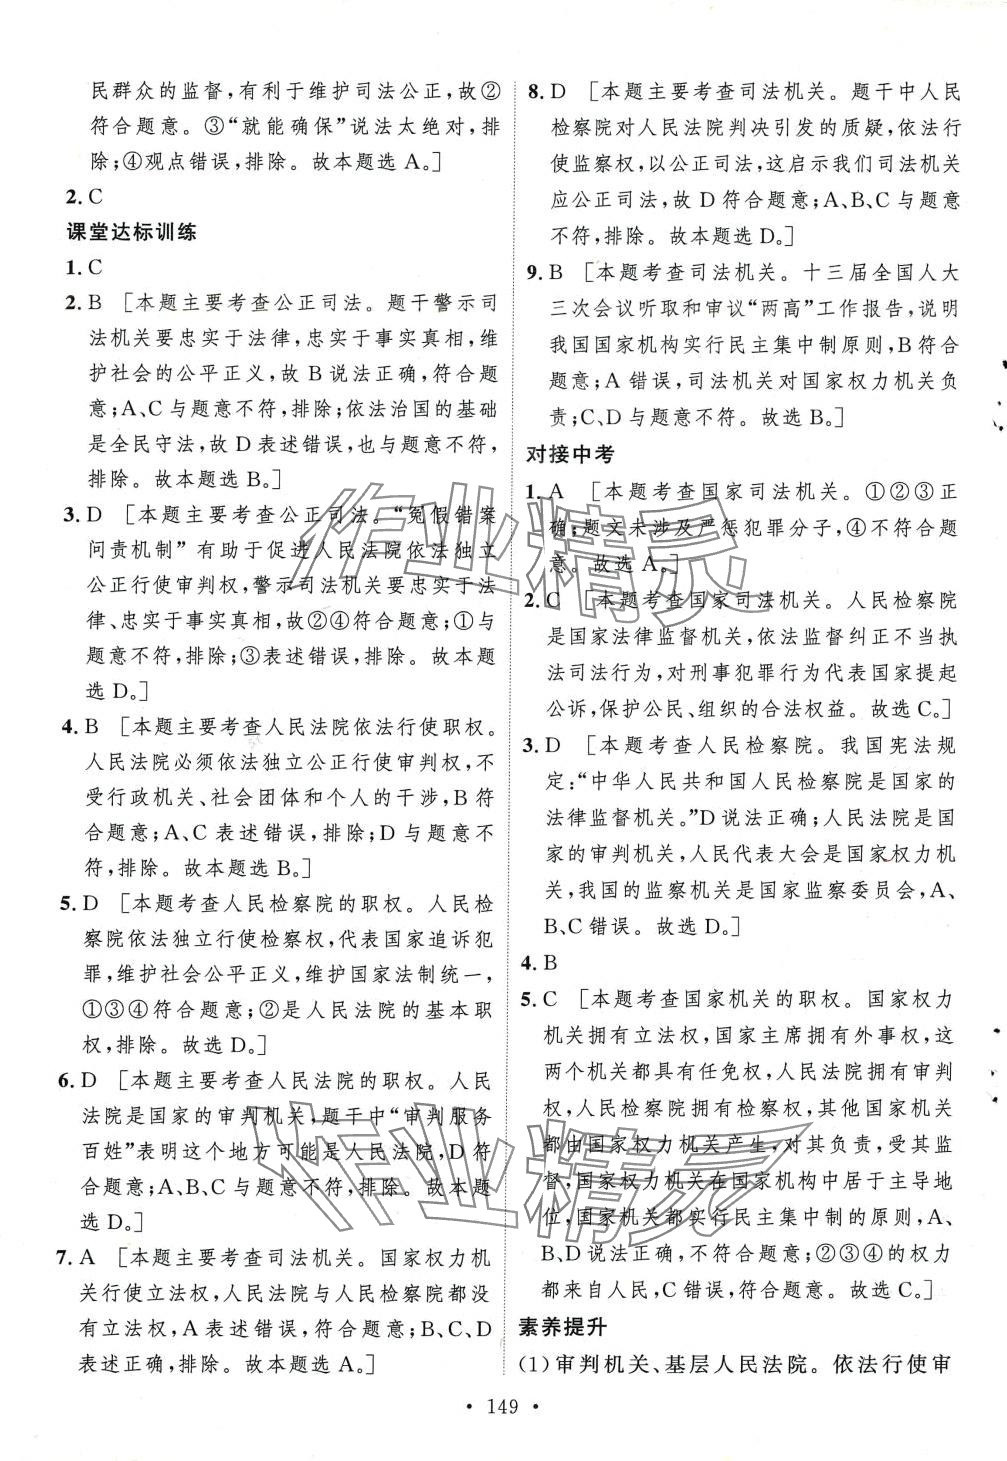 民群众的监督,有利于维护司法公正,故②
符合题意。③“就能确保”说法太绝对,排
除;④观点错误,排除。故本题选 A。]
2. C
课堂达标训练
1. C
2. B [本题主要考查公正司法。题干警示司
法机关要忠实于法律,忠实于事实真相,维
护社会的公平正义,故 B 说法正确,符合题
意;A、C 与题意不符,排除;依法治国的基础
是全民守法,故 D 表述错误,也与题意不符,
排除。故本题选 B。]
3. D [本题主要考查公正司法。“冤假错案
问责机制”有助于促进人民法院依法独立
公正行使审判权,警示司法机关要忠实于法
律、忠实于事实真相,故②④符合题意;①与
题意不符,排除;③表述错误,排除。故本题
选 D。]
4. B [本题主要考查人民法院依法行使职权。
人民法院必须依法独立公正行使审判权,不
受行政机关、社会团体和个人的干涉,B 符
合题意;A、C 表述错误,排除;D 与题意不
符,排除。故本题选 B。]
5. D [本题考查人民检察院的职权。人民检
察院依法独立行使检察权,代表国家追诉犯
罪,维护社会公平正义,维护国家法制统一,
①③④符合题意;②是人民法院的基本职
权,排除。故选 D。]
6. D [本题主要考查人民法院的职权。人民
法院是国家的审判机关,题干中“审判服务
百姓”表明这个地方可能是人民法院,D 符
合题意;A、B、C 与题意不符,排除。故本题
选 D。]
7. A [本题主要考查司法机关。国家权力机
关行使立法权,人民法院与人民检察院都没
有立法权,A 表述错误,符合题意;B、C、D
表述正确,排除。故本题选 A。]
8. D [本题主要考查司法机关。题干中人民
检察院对人民法院判决引发的质疑,依法行
使监察权,以公正司法,这启示我们司法机关
应公正司法,故 D 符合题意;A、B、C 与题意
不符,排除。故本题选 D。]
9. B [本题考查司法机关。十三届全国人大
三次会议听取和审议“两高”工作报告,说明
我国国家机构实行民主集中制原则,B 符合
题意;A 错误,司法机关对国家权力机关负
责;C、D 与题意不符。故选 B。]
对接中考
1. A [本题考查国家司法机关。①②③正
确;题文未涉及严惩犯罪分子,④不符合题
意。故选 A。]
2. C [本题考查国家司法机关。人民检察院
是国家法律监督机关,依法监督纠正不当执
法司法行为,对刑事犯罪行为代表国家提起
公诉,保护公民、组织的合法权益。故选 C。]
3. D [本题考查人民检察院。我国宪法规
定:“中华人民共和国人民检察院是国家的
法律监督机关。”D 说法正确;人民法院是国
家的审判机关,人民代表大会是国家权力机
关,我国的监察机关是国家监察委员会,A、
B、C 错误。故选 D。]
4. B
5. C [本题考查国家机关的职权。国家权力
机关拥有立法权,国家主席拥有外事权,这
两个机关都具有任免权,人民法院有审判
权,人民检察院拥有检察权,其他国家机关
都由国家权力机关产生,对其负责,受其监
督,国家权力机关在国家机构中居于主导地
位,国家机关都实行民主集中制的原则,A、
B、D 说法正确,不符合题意;②③④的权力
都来自人民,C 错误,符合题意。故选 C。]
素养提升
(1)审判机关、基层人民法院。依法行使审
• 149 •
作业精灵
作业精灵